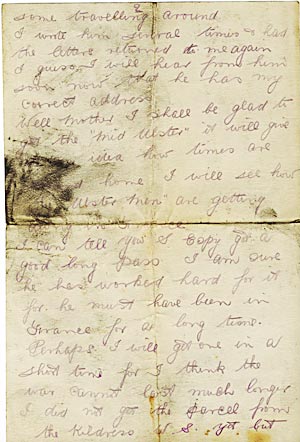 2
some travelling around
I wrote him several times & had
the letters returned to me again
I guess I will hear from him
soon now that he has my
correct address
Well Mother I shall be glad to
get the "Mid Ulster" it will give
idea how times are
home I will see how
Ulster men are getting
I can tell you S. Copy got a
good long pass I am sure
he has worked hard for it
for he must have been in
France for a long time.
Perhaps I will get one in a
short time for I think the
war cannot last much longer
I did not get the parcel from
the Kildress S. S. yet but